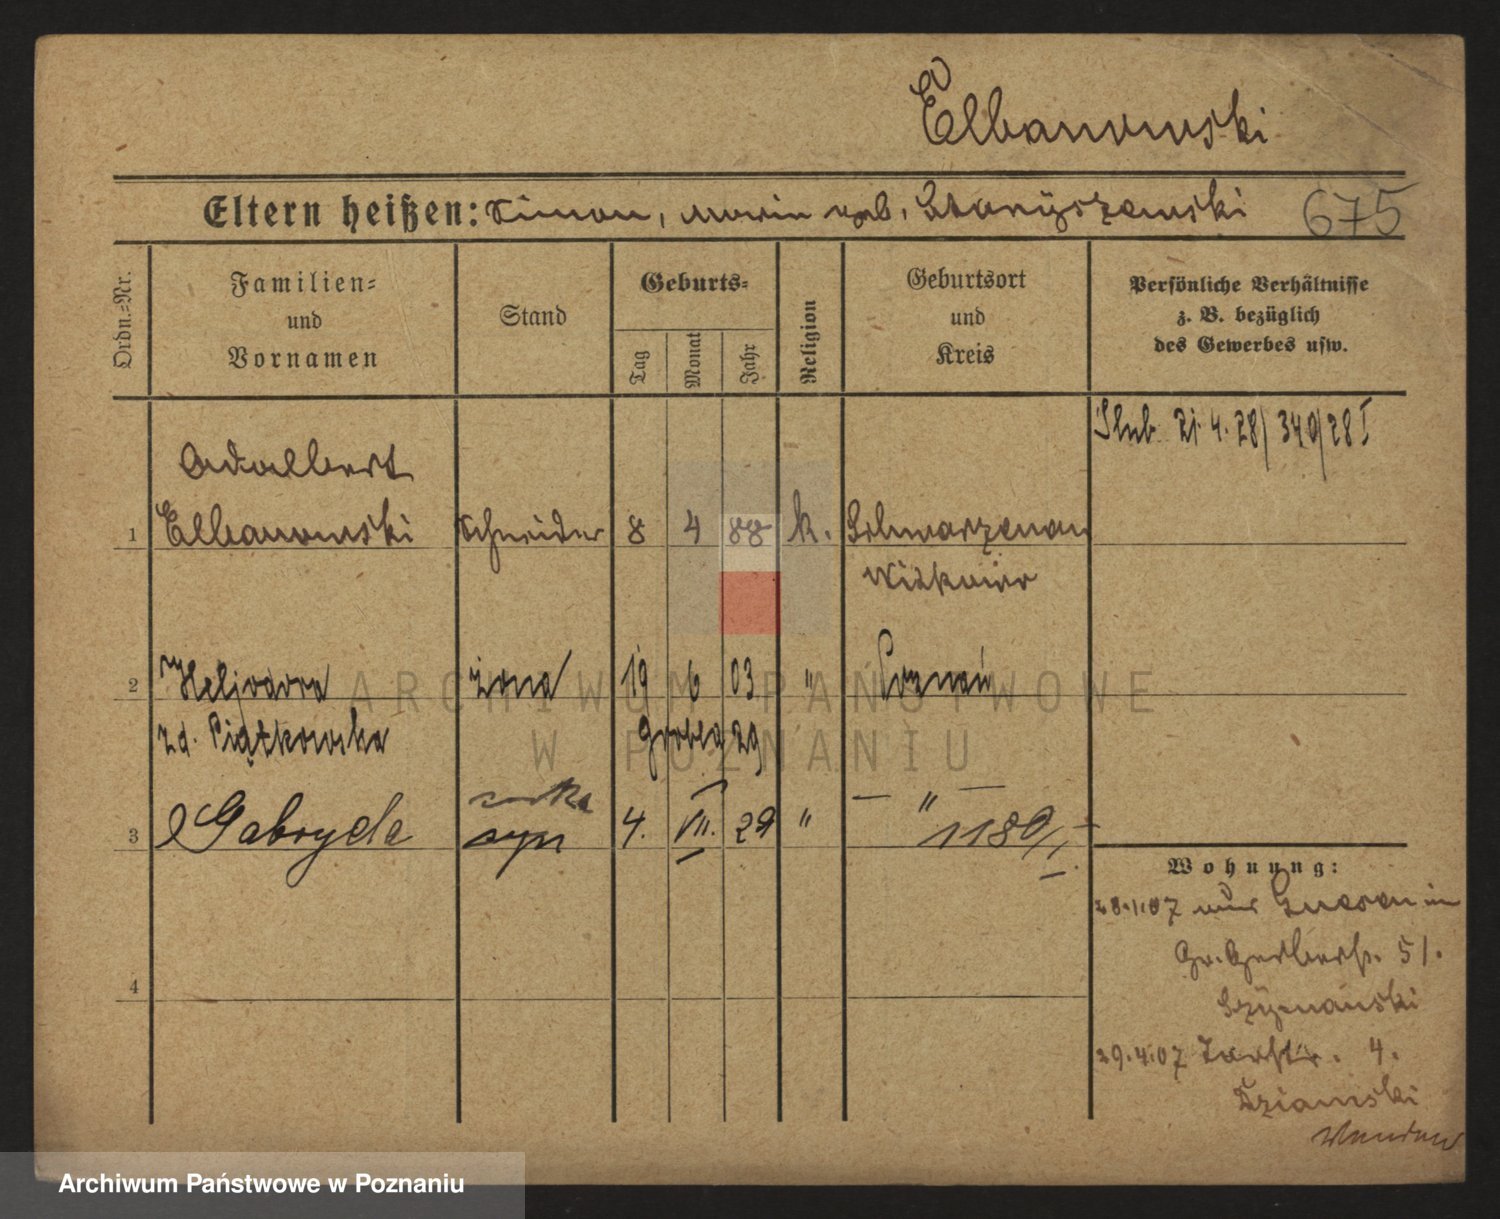 Elbanowski
Eltern heißen: Simon, Marin geb. Stanÿszewski 675
Ordn.-Nr.
Familien-
und
Vornamen
Stand
Geburts-
Tag
Monat
Jahr
Religion
Geburtsort
und
Kreis
Persönliche Verhältnisse
z. B. bezüglich
des Gewerbes usw.
Ślub 21.4.28/349/28 I
Adalbert
1 Elbanowski Schneider 8 4 88 k. Schwarzenau
Witkowo
2 Heljodora żona 19 6 03 " Poznań
zd. Piątkowska Grobla 29
córka
3 Gabryela syn 4. VII. 29 " — " —
1189/I
4
Wohnung:
28.1.07 aus Gnesen in
Gr. Gerberstr. 51.
Szÿmański
29.4.07 Torstr. 4.
Dziamski
ARCHIWUM PAŃSTWOWE
W POZNANIU
Archiwum Państwowe w Poznaniu